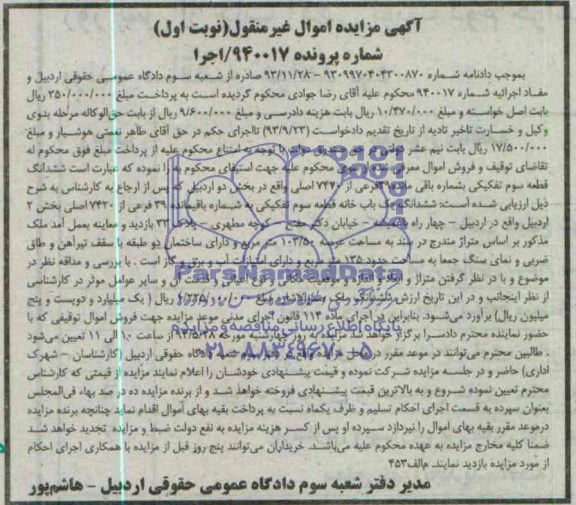 آگهی مزایده اموال غیرمنقول(نوبت اول)
شماره پرونده ۹۴۰۰۱۷/اجرا
بموجب دادنامه شماره ۹۳۰۹۹۷۰۴۰۴۳۰۰۸۷۰ – ۹۳/۱۱/۲۸ صادره از شعبه سوم دادگاه عمومی حقوقی اردبیل و
مفاد اجرائیه شماره ۹۴۰۰۱۷ محکوم علیه آقای رضا جوادی محکوم گردیده است به پرداخت مبلغ ۳۵۰/۰۰۰/۰۰۰ ریال
بابت اصل خواسته و مبلغ ۱۰/۴۷۰/۰۰۰ ریال بابت هزینه دادرسی و مبلغ ۹/۶۰۰/۰۰۰ ریال از بابت حق‌الوکاله مرحله بدوی
وکیل و خسارت تاخیر تادیه از تاریخ تقدیم دادخواست (۹۳/۹/۲۳) تااجرای حکم در حق آقای طاهر نعمتی هوشیار و مبلغ
۱۷/۵۰۰/۰۰۰ ریال بابت نیم عشر دولتی در حق صندوق دولت با توجه به امتناع محکوم علیه از پرداخت مبلغ فوق محکوم له
تقاضای توقیف و فروش اموال معرفی محکوم علیه جهت استیفای محکوم به را نموده که عبارت است ششدانگ
قطعه سوم تفکیکی بشماره باقی مانده ۳۹فرعی از ۷۴۲۰ اصلی واقع در بخش دو اردبیل که پس از ارجاع به کارشناس به شرح
ذیل ارزیابی شده است: ششدانگ یک باب خانه قطعه سوم تفکیکی به شماره باقیمانده ۳۹ فرعی از ۷۴۲۰ اصلی بخش ۲
اردبیل واقع در اردبیل – چهار راه – خیابان دکتر مفتح – کوچه مطهری – پلاک ۳۳ بازدید و معاینه بعمل آمد ملک
مذکور بر اساس متراژ مندرج در سند به مساحت عرصه ۱۰۳/۵۰ متر مربع و دارای ساختمان دو طبقه با سقف تیرآهن و طاق
ضربی و نمای سنگ جمعا به مساحت حدود ۱۳۵ متر مربع و دارای امتیازات آب و برق و گاز است . با بررسی و مداقه نظر در
موضوع و با در نظر گرفتن متراژ و ابعاد و اندازه و موقعیت مکانی و نوع اعیانی و قدمت آن و سایر عوامل موثر در کارشناسی
از نظر اینجانب و در این تاریخ ارزش ششدانگ ملک ریال ( یک میلیارد و دویست و پنج
میلیون ریال) برآورد می‌شود. بنابراین در اجرای ماده ۱۱۴ قانون اجرای مدنی موعد مزایده جهت فروش اموال توقیفی که با
حضور نماینده محترم دادسرا برگزار خواهد شد مزایده به روز چهارشنبه مورخه ۹۴/۵/۲۸ از ساعت ۱۰ الی ۱۱ تعیین می‌شود
. طالبین محترم می‌توانند در موعد مقرر در محل دادگاه حقوقی اردبیل (کارشناسان – شهرک
اداری) حاضر و در جلسه مزایده شرکت نموده و قیمت پیشنهادی خودشان را اعلام نمایند مزایده از قیمتی که کارشناس
محترم تعیین نموده شروع و به بالاترین قیمت پیشنهادی فروخته خواهد شد و از برنده مزایده ده در صد بهاء فی‌المجلس
بعنوان سپرده به قسمت اجرای احکام تسلیم و ظرف یکماه نسبت به پرداخت بقیه بهای اموال اقدام نماید چنانچه برنده مزایده
درموعد مقرر بقیه بهای اموال را نپردازد سپرده او پس از کسر هزینه مزایده به نفع دولت ضبط و مزایده تجدید خواهد شد
ضمنا کلیه مخارج مزایده به عهده محکوم علیه می‌باشد. خریداران می‌توانند پنج روز قبل از مزایده با همکاری اجرای احکام
از مورد مزایده بازدید نمایند. م‌الف۴۵۳
مدیر دفتر شعبه سوم دادگاه عمومی حقوقی اردبیل – هاشم‌پور
ParsNamadData
پایگاه اطلاع رسانی مناقصه و مزایده
۰۲۱-۸۸۳۴۹۶۷۰-۵